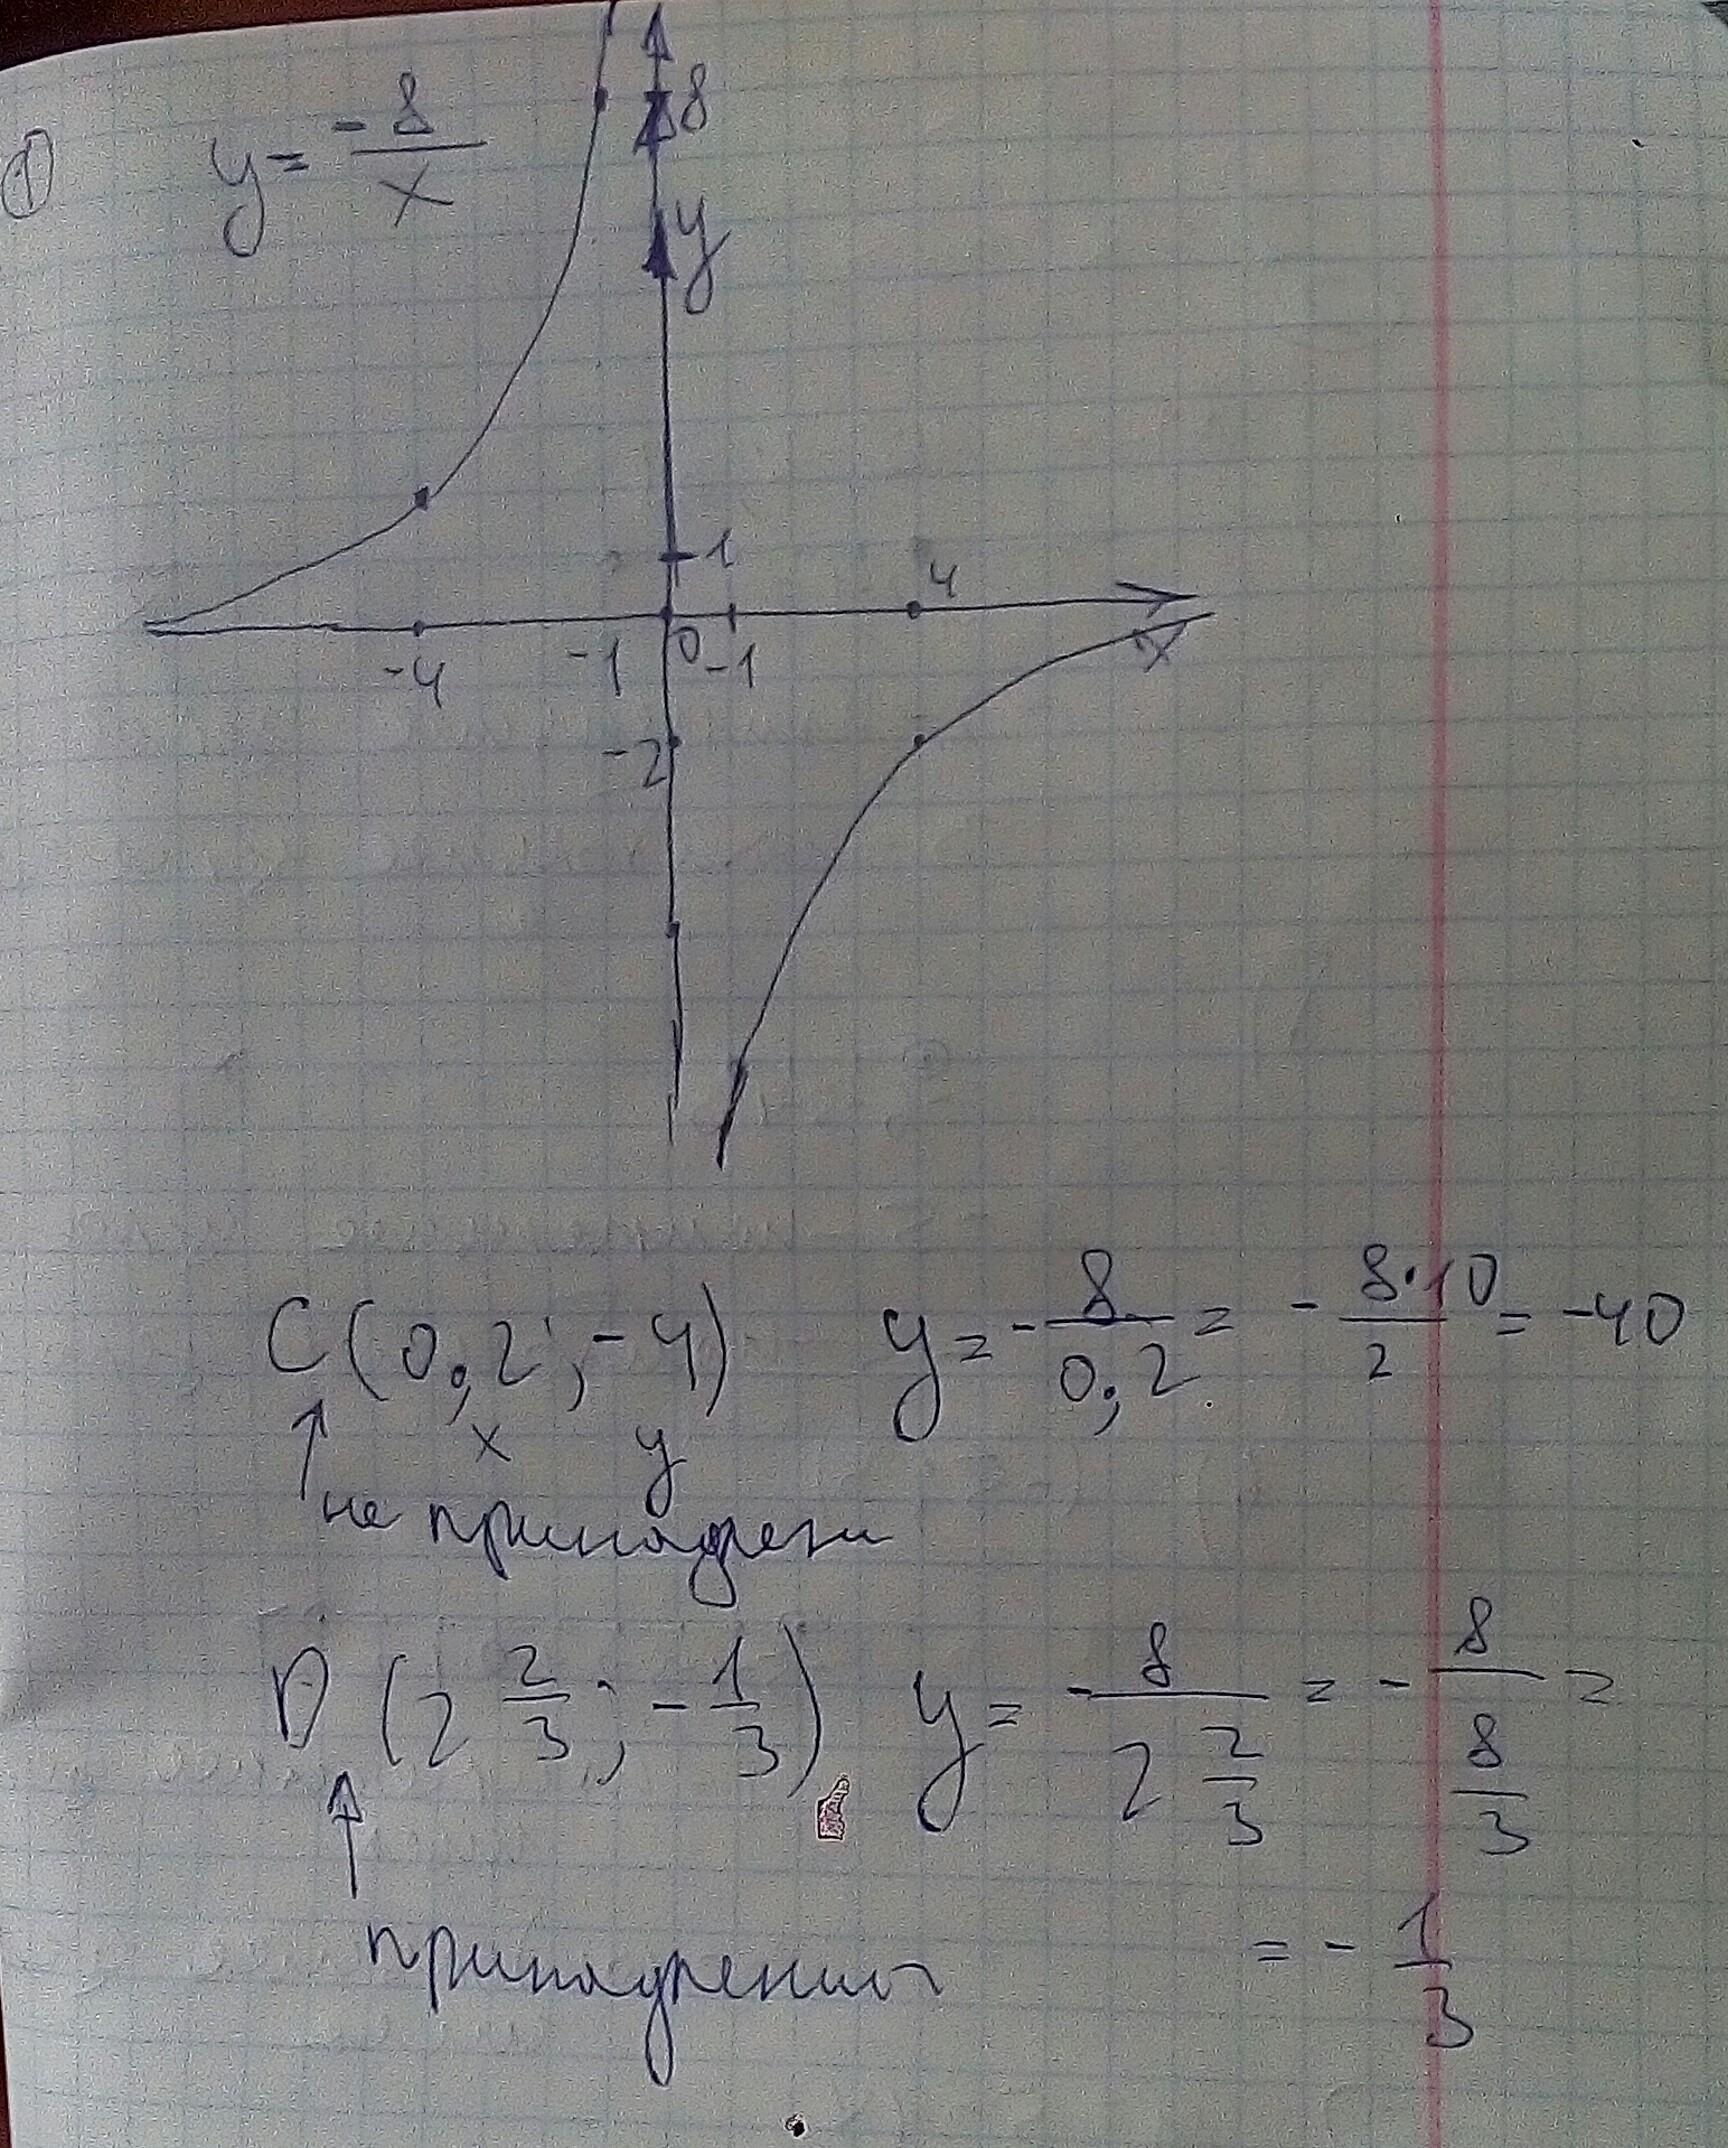 ① y = -8/x
8
y
1
4
-4 -1 0 -1 x
-2
C (0,2 ; -4) y = -8/0,2 = -8·10/2 = -40
x y
не принадлежи
D (2 2/3 ; -1/3) y = -8/(2 2/3) = -8/(8/3) =
принадлежит = -1/3